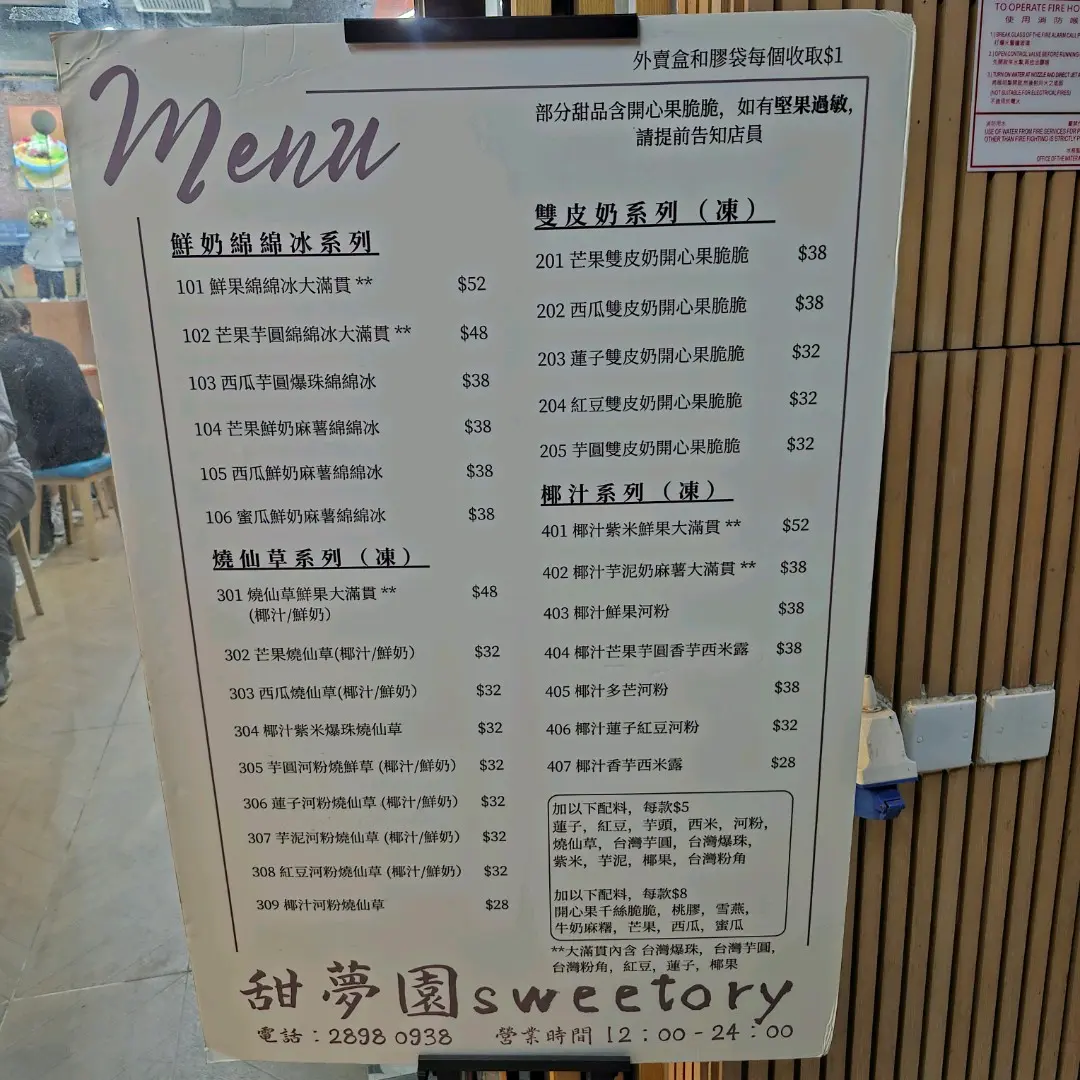 Menu
外賣盒和膠袋每個收取$1
部分甜品含開心果脆脆，如有堅果過敏，
請提前告知店員
鮮奶綿綿冰系列
101 鮮果綿綿冰大滿貫 ** $52
102 芒果芋圓綿綿冰大滿貫 ** $48
103 西瓜芋圓爆珠綿綿冰 $38
104 芒果鮮奶麻薯綿綿冰 $38
105 西瓜鮮奶麻薯綿綿冰 $38
106 蜜瓜鮮奶麻薯綿綿冰 $38
燒仙草系列（凍）
301 燒仙草鮮果大滿貫 ** $48
(椰汁/鮮奶)
302 芒果燒仙草(椰汁/鮮奶) $32
303 西瓜燒仙草(椰汁/鮮奶) $32
304 椰汁紫米爆珠燒仙草 $32
305 芋圓河粉燒鮮草 (椰汁/鮮奶) $32
306 蓮子河粉燒仙草 (椰汁/鮮奶) $32
307 芋泥河粉燒仙草 (椰汁/鮮奶) $32
308 紅豆河粉燒仙草 (椰汁/鮮奶) $32
309 椰汁河粉燒仙草 $28
雙皮奶系列（凍）
201 芒果雙皮奶開心果脆脆 $38
202 西瓜雙皮奶開心果脆脆 $38
203 蓮子雙皮奶開心果脆脆 $32
204 紅豆雙皮奶開心果脆脆 $32
205 芋圓雙皮奶開心果脆脆 $32
椰汁系列（凍）
401 椰汁紫米鮮果大滿貫 ** $52
402 椰汁芋泥奶麻薯大滿貫 ** $38
403 椰汁鮮果河粉 $38
404 椰汁芒果芋圓香芋西米露 $38
405 椰汁多芒河粉 $38
406 椰汁蓮子紅豆河粉 $32
407 椰汁香芋西米露 $28
加以下配料，每款$5
蓮子，紅豆，芋頭，西米，河粉，
燒仙草，台灣芋圓，台灣爆珠，
紫米，芋泥，椰果，台灣粉角
加以下配料，每款$8
開心果千絲脆脆，桃膠，雪燕，
牛奶麻糬，芒果，西瓜，蜜瓜
**大滿貫內含 台灣爆珠，台灣芋圓，
台灣粉角，紅豆，蓮子，椰果
甜夢園sweetory
電話：2898 0938 營業時間 12：00-24：00
TO OPERATE FIRE HO
使用消防喉